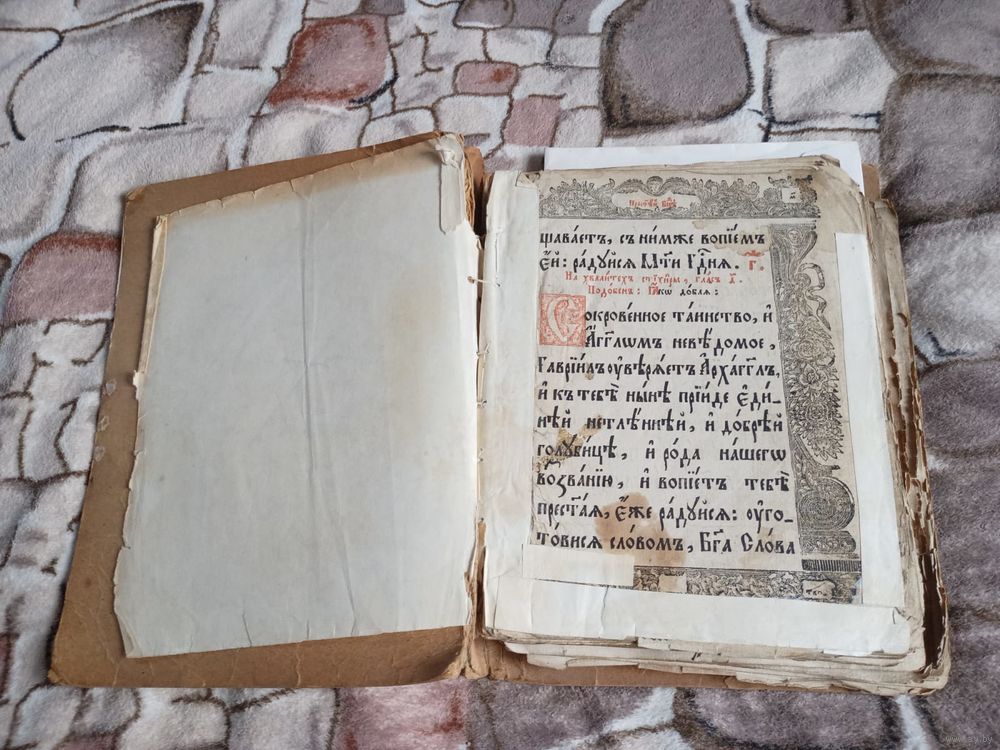 щава́етъ, съ ни́мже вопїе́мъ
є҆́й: ра́дꙋйсѧ Мт҃и Гдⷭ҇нѧ. г҃.
На хвали́техъ стїхи́ры, гла́съ а҃.
Подо́бенъ: Ꙗ҆́кѡ до́блѧ:
Сокрове́нное та́инство, и҆
А҆́гг҃лѡмъ невѣ́домое,
Гаврїи́лъ ᲂу҆вѣрѧ́етъ А҆рха́гг҃лъ,
и҆ къ тебѣ̀ ны́нѣ прїи́де є҆ди́-
нѣй нетлѣ́ннѣй, и҆ до́брѣй
голꙋби́цѣ, и҆ ро́да на́шегѡ
возва́нїю, и҆ вопїе́тъ тебѣ̀
прест҃а́ѧ, є҆́же ра́дꙋйсѧ: ᲂу҆гo-
то́висѧ сло́вомъ, Бг҃а Сло́ва